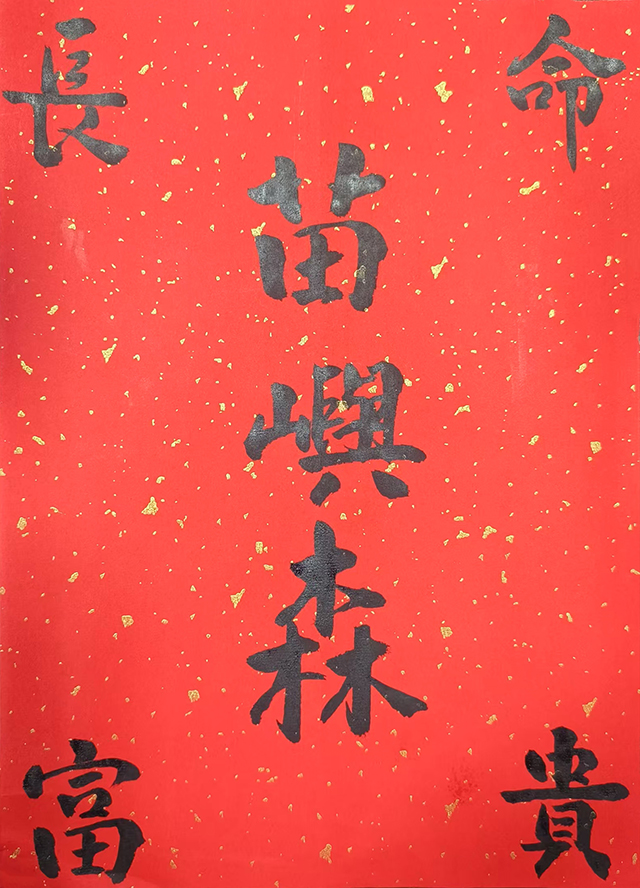 長命
苗
嶼
森
富貴